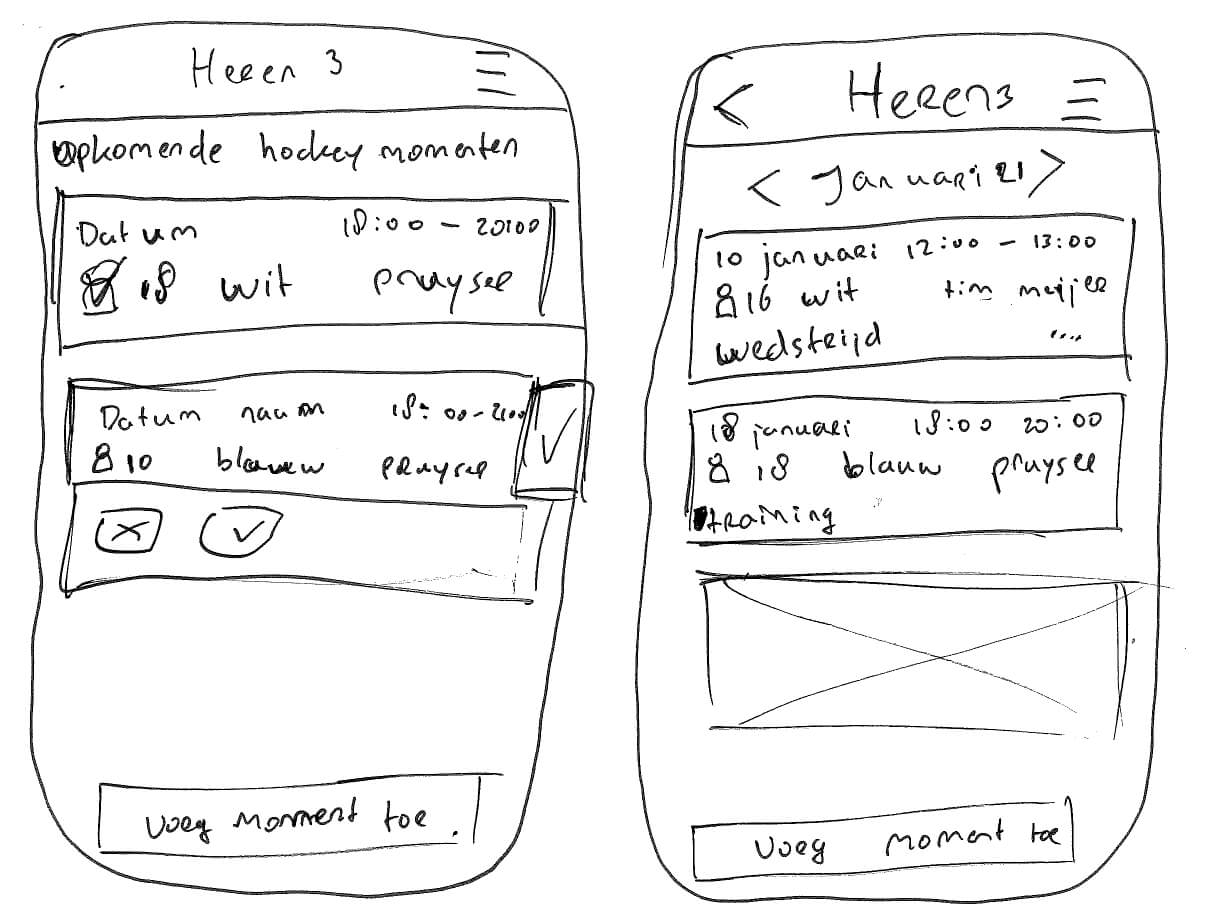 Heren 3
Opkomende hockey momenten
Datum 18:00 - 20:00
18 wit pruyser
Datum naam 18:00 - 21:00
10 blauw pruyser
Voeg moment toe.
< Heren3
< Januari 21 >
10 januari 12:00 - 13:00
16 wit tim meijer
wedstrijd ....
18 januari 18:00 20:00
18 blauw pruyser
training
Voeg moment toe